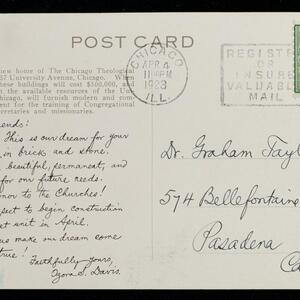 POST CARD
new home of The Chicago Theological
57 University Avenue, Chicago. When
these buildings will cost $500,000, and
h the available resources of the Uni-
hicago, will furnish modern and com-
ent for the training of Congregational
secretaries and missionaries.
CHICAGO
APR 4
11 PM
1923
ILL.
REGISTER
OR
INSURE
VALUABLE
MAIL
ends:
This is our dream for your
in brick and stone.
beautiful, permanent, and
for our future needs.
nor to the Churches!
pect to begin construction
st unit in April.
us make our dream come
true!
Faithfully yours,
Ozora S. Davis.
Dr. Graham Tayl
574 Bellefontaine
Pasadena
Ca